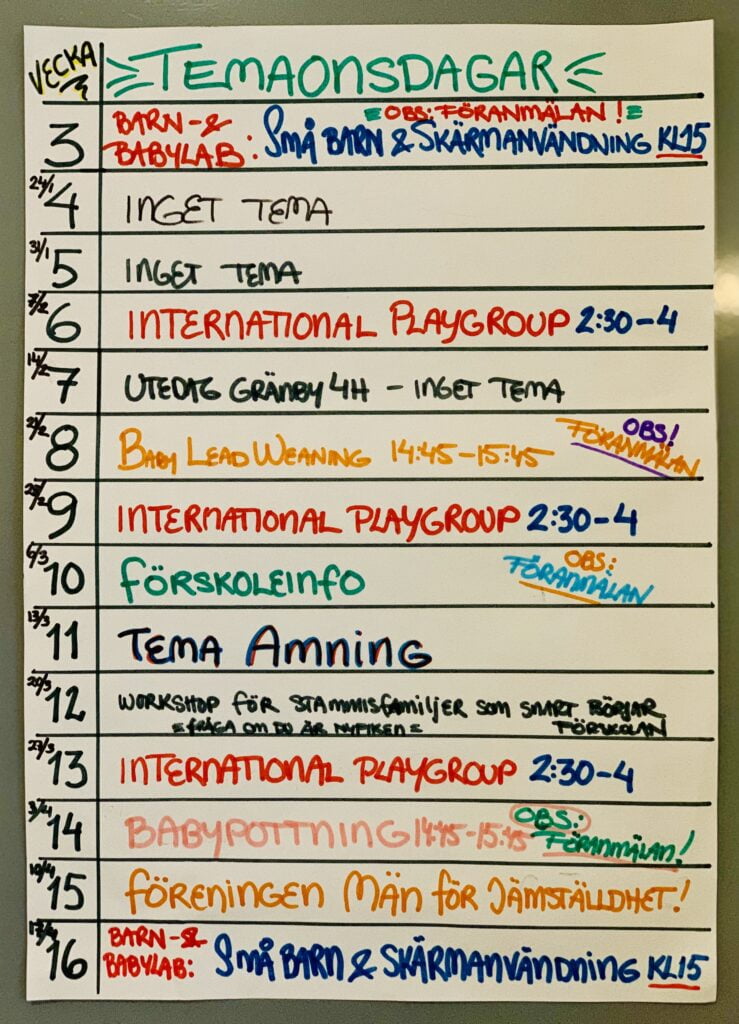 VECKA TEMAONSDAGAR
OBS: FÖRANMÄLAN!
3 BARN- & BABYLAB: SMÅ BARN & SKÄRMANVÄNDNING KL15
24/1 4 INGET TEMA
31/1 5 INGET TEMA
7/2 6 INTERNATIONAL PLAYGROUP 2:30-4
14/2 7 UTEDAG GRÄNBY 4H - INGET TEMA
21/2 8 BABY LEAD WEANING 14:45-15:45 OBS! FÖRANMÄLAN
28/2 9 INTERNATIONAL PLAYGROUP 2:30-4
6/3 10 FÖRSKOLEINFO OBS: FÖRANMÄLAN
13/3 11 TEMA Amning
20/3 12 WORKSHOP FÖR STAMMISFAMILJER SOM SNART BÖRJAR FÖRSKOLAN
=FRÅGA OM DU ÄR NYFIKEN=
27/3 13 INTERNATIONAL PLAYGROUP 2:30-4
3/4 14 BABYPOTTNING 14:45-15:45 OBS: FÖRANMÄLAN!
10/4 15 FÖRENINGEN MÄN FÖR JÄMSTÄLLDHET!
17/4 16 BARN- & BABYLAB: SMÅ BARN & SKÄRMANVÄNDNING KL15